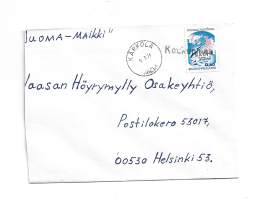 "SUOMA-MAIKKI"
KARKOLA
Vaasan Höyrymylly Osakeyhtiö,
Postilokero 53017,
00530 Helsinki 53.